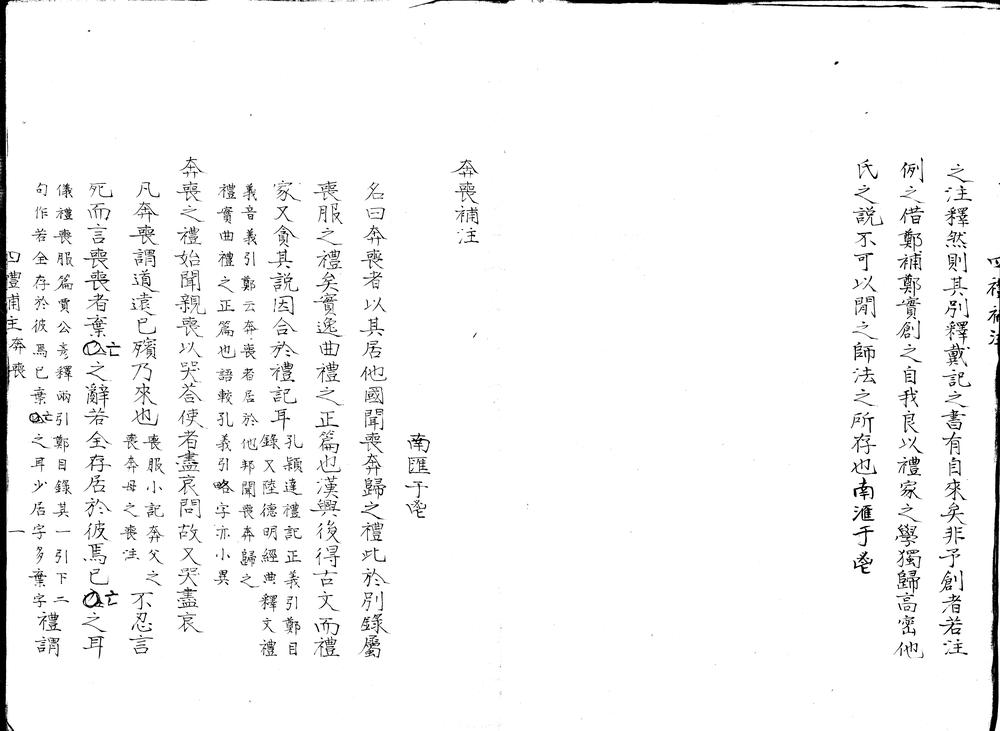 四禮補注
之注釋然則其別釋戴記之書有自來矣非予創者若注
例之借鄭補鄭實創之自我良以禮家之學獨歸高密他
氏之說不可以閒之師法之所存也南滙于鬯
奔喪補注
南匯于鬯
名曰奔喪者以其居他國聞喪奔歸之禮此於別錄屬
喪服之禮矣實逸曲禮之正篇也漢興後得古文而禮
家又貪其說因合於禮記耳孔穎達禮記正義引鄭目
錄又陸德明經典釋文禮
義音義引鄭云奔喪者居於他邦聞喪奔歸之
禮實曲禮之正篇也語較孔義引略字亦小異
奔喪之禮始聞親喪以哭荅使者盡哀問故又哭盡哀
凡奔喪謂道遠已殯乃來也喪服小記奔父之
喪奔母之喪注不忍言
死而言喪喪者棄亡之辭若全存居於彼焉已亡之耳
儀禮喪服篇賈公彥釋兩引鄭目錄其一引下二
句作若全存於彼焉已棄亡之耳少居字多棄字禮謂
四禮補注奔喪 一